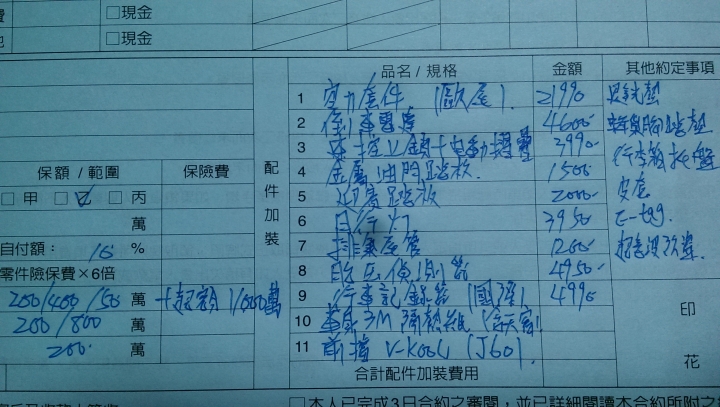 □現金
□現金
品名 / 規格 金額 其他約定事項
1 空力套件 (歐尾). 21990
2 倒車雷達 4600-
3 390-
4 金屬油門踏板. 1500
5 迎賓踏板 2000-
6 日行灯 3950
7 排氣尾管 1200-
8 胎压偵測器 4950-
9 行車記錄器 4990
10 車身3M隔熱紙
11 前擋 V-KOOL (J60).
合計配件加裝費用
配件加裝
保額 / 範圍 保險費
□ 甲 □ 乙 □ 丙
萬
自付額： 10 %
零件險保費×6倍
200/400/50 萬 +超額 1000萬
200/800 萬
200- 萬
腳踏墊
行李箱托盤
皮套
E-tag.
印
花
□本人已完成3日合約之審閱，並已詳細閱讀本合約所附之